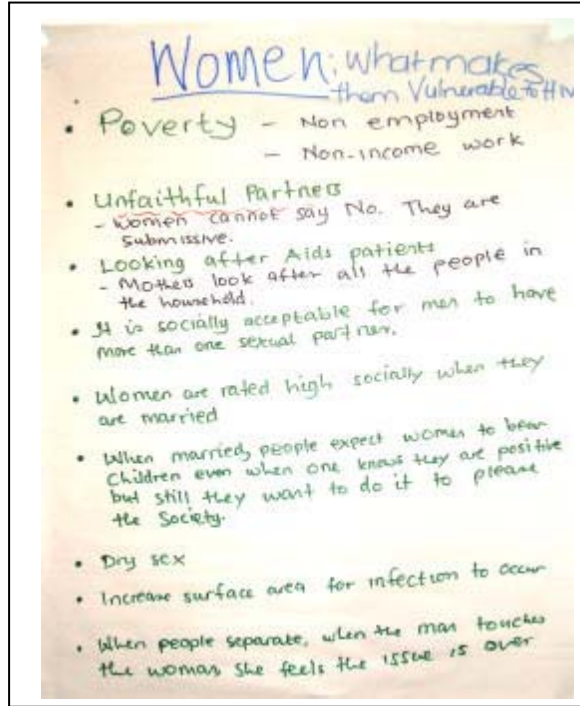 Women: What makes
them Vulnerable to HIV
• Poverty – Non employment
– Non-income work
• Unfaithful Partners
- Women cannot say No. They are
submissive.
• Looking after Aids patients
- Mothers look after all the people in
the household.
• It is socially acceptable for men to have
more than one sexual partner.
• Women are rated high socially when they
are married
• When married, people expect women to bear
Children even when one knows they are positive
but still they want to do it to please
the Society.
• Dry sex
• Increase surface area for infection to occur
• When people separate, when the man touches
the woman, she feels the issue is over